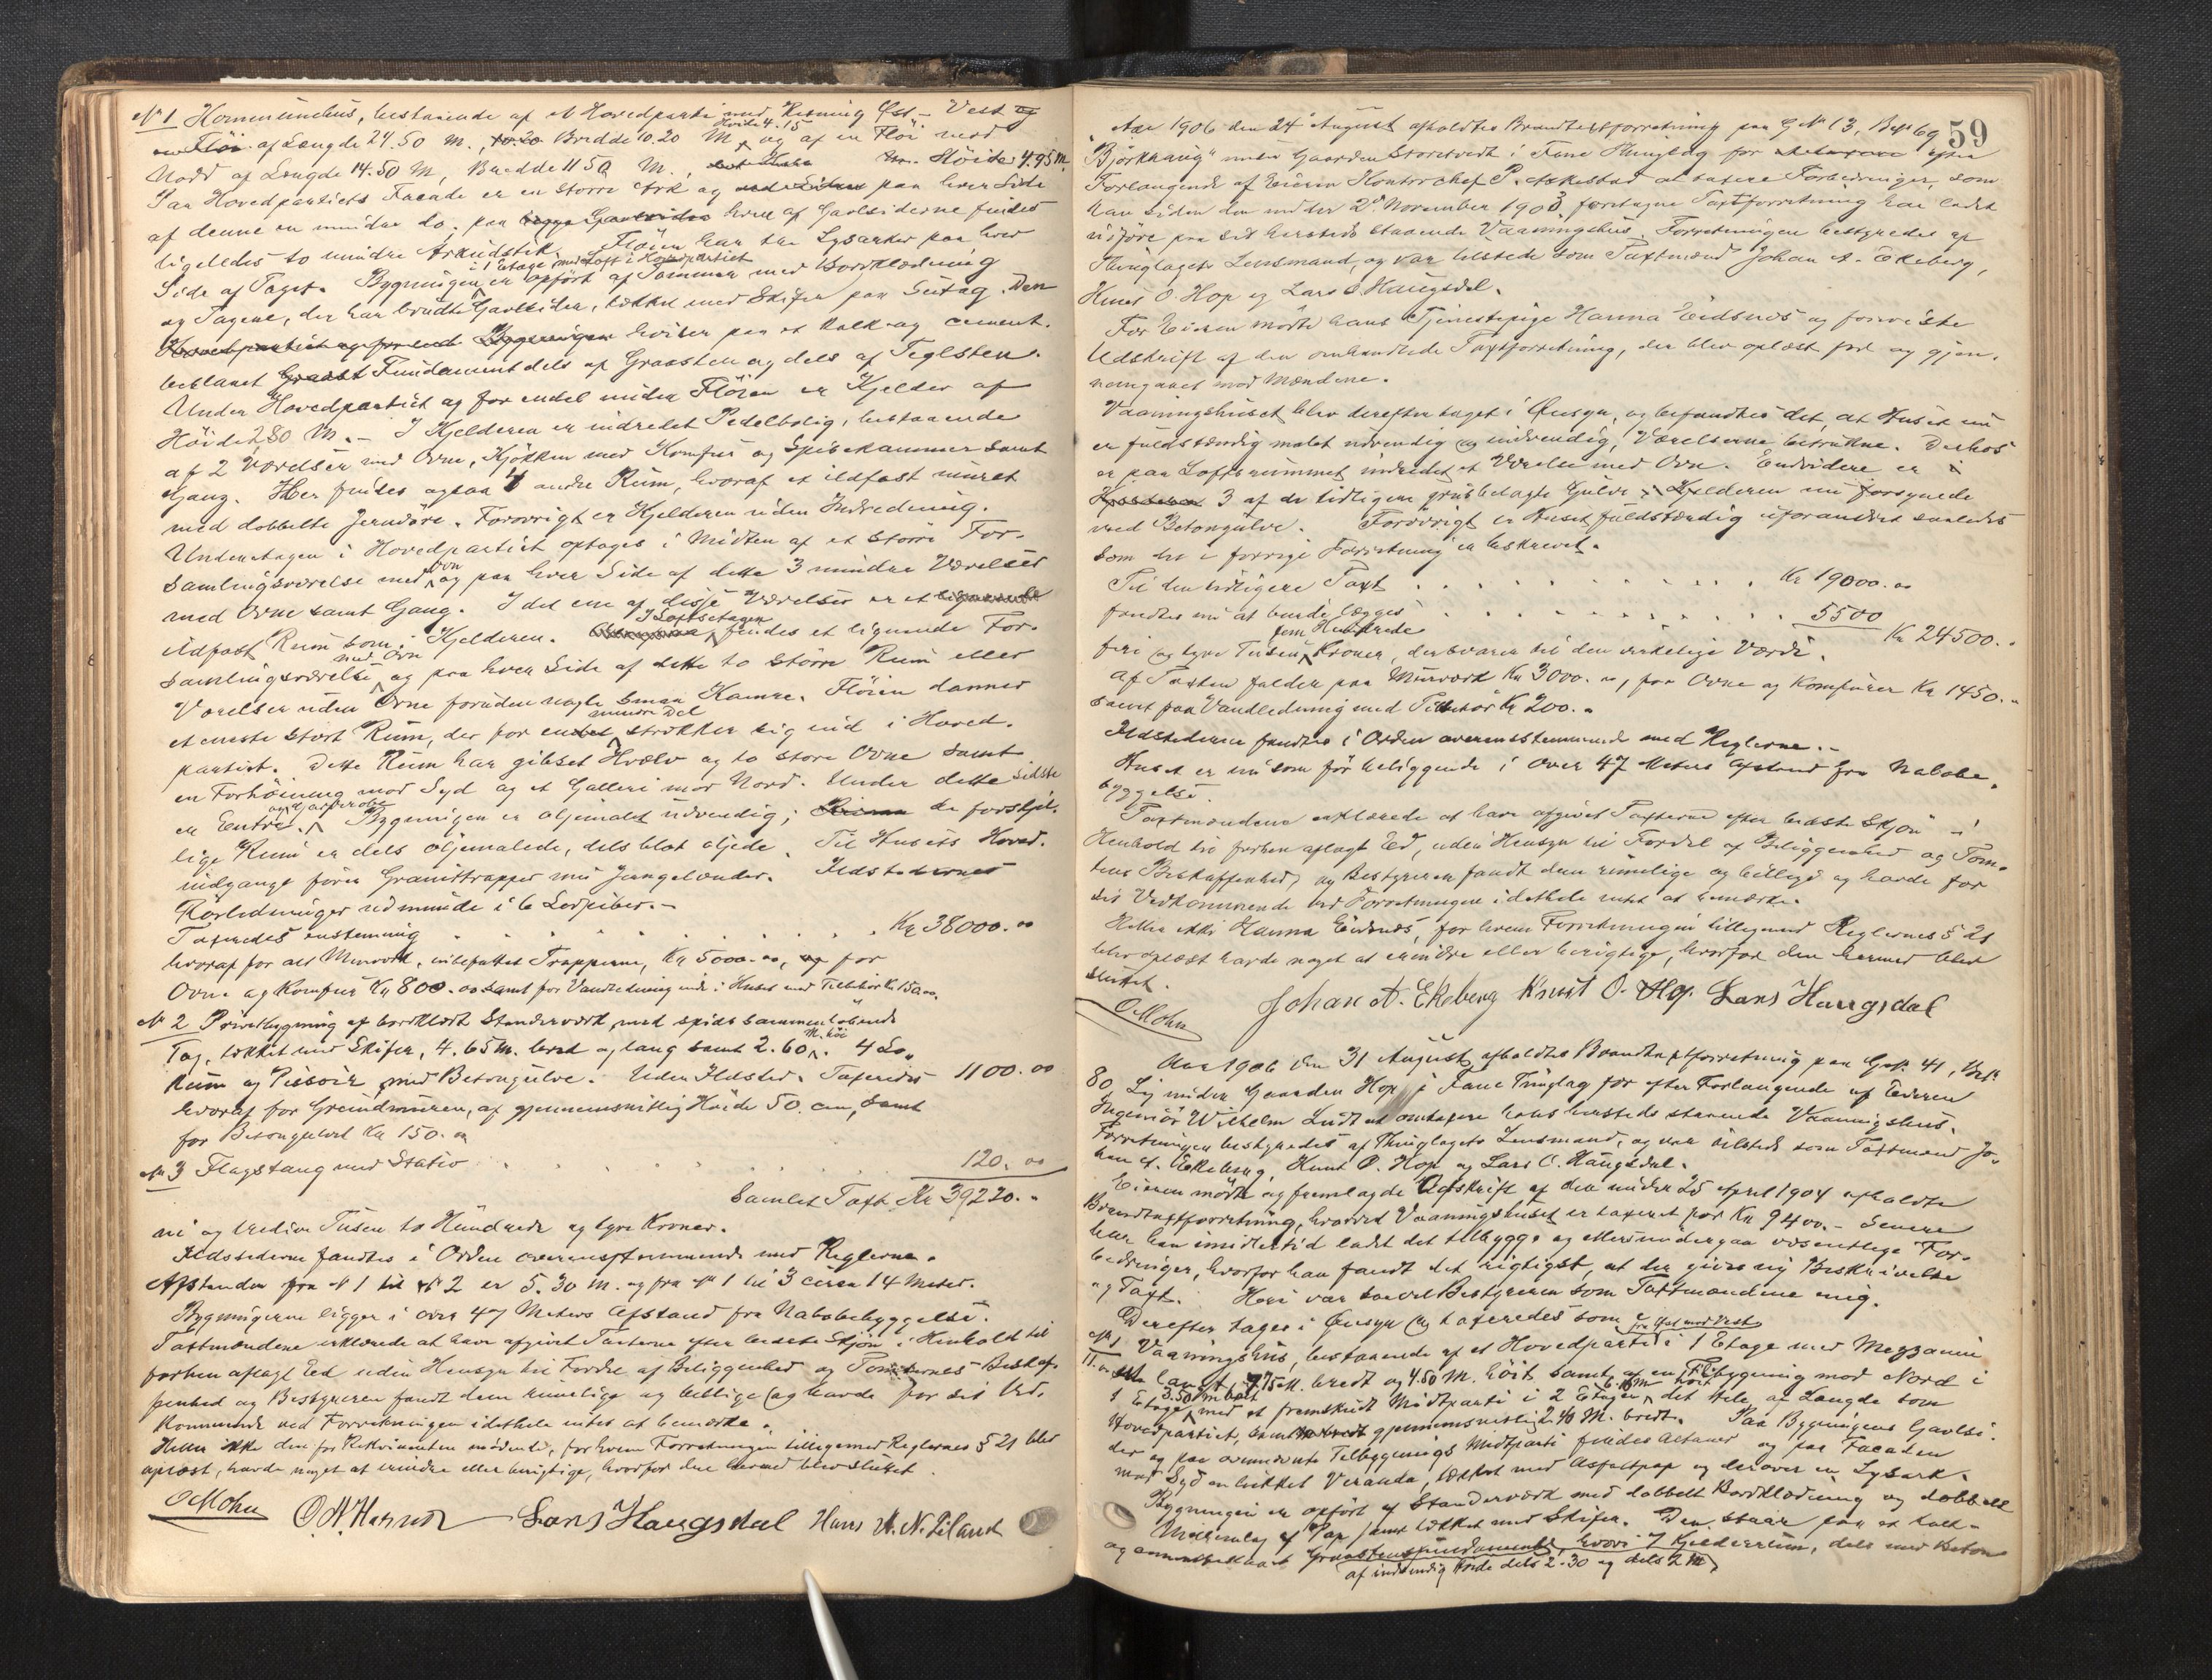 No 1 Kommunehus, bestaaende af et Hovedparti med Retning Øst - Vest og
en Fløi af Længde 24.50 M., 10.20 Bredde 10.20 M, Høide 4.15 og af en Fløi mod
Nord af Længde 14.50 M, Bredde 11 50 M., Høide 4.95 M.
Paa Hovedpartiets Facade er en større Ark og paa hver Side
af denne en mindre do., paa begge Gavlsider hver af Gavlsiderne findes
ligeledes to mindre Arkudstik. Fløien har tre Lysarker paa hver
Side af Taget. Bygningen er i 1 Etage med Loft i Hovedpartiet opført af Tømmer med Bordklædning
og Tagene, der har brudte Gavlsider, tækket med Skifer paa Sutag. Den
Hovedpartiet og forøvrigt Bygningen hviler paa et kalk- og cement-
beslaaet Graast Fundament dels af Graasten og dels af Teglsten.
Under Hovedpartiet og for endel under Fløien er Kjelder af
Høide 2,80 M. - I Kjelderen er indredet Pedelbolig, bestaaende
af 2 Værelser med Ovne, Kjøkken med Komfur og Spisekammer samt
Gang. Her findes ogsaa 4 andre Rum, hvoraf et ildfast muret
med dobbelte Jerndøre. Forøvrigt er Kjelderen uden Indredning.
Underetagen i Hovedpartiet optages i Midten af et større For-
samlingsværelse med Ovn og paa hver Side af dette 3 mindre Værelser
med Ovne samt Gang. I det ene af disse Værelser er et lignende
ildfast Rum som i Kjelderen. I Loftsetagen findes et lignende For-
samlingsværelse med Ovn og paa hver Side af dette to større Rum eller
Værelser uden Ovne foruden nogle smaa Kamre. Fløien danner
et eneste stort Rum, der for en mindre Del strækker sig ind i Hoved-
partiet. Dette Rum har gibset Hvælv og to store Ovne samt
en Forhøining mod Syd og et Galleri mod Nord. Under dette sidste
er Entré og Garderobe. Bygningen er oljemalet udvendig; de forskjel-
lige Rum er dels oljemalede, dels blot oljede. Til Husets Hoved-
indgange fører Granittrapper med Jerngelænder. Ildstedernes
Rørledninger udmunde i 6 Lodpiber. -
Taxeredes enstemmig . . . . . . . . . Kr 38000.00
hvoraf for alt Murværk, indbefattet Trapperne, Kr 5000.00, og for
Ovne og Komfur Kr 800.00 samt for Vandledning inde i Huset med Tilbehør Kr 150.00.
No 2 Privetbygning af bordklædt Standerværk med spids sammenløbende
Tag, tækket med Skifer, 4.65 M. bred og lang samt 2.60 M. høi. 4 Lo-
Rum og Pissoir, med Betongulve. Uden Ildsted. Taxeredes 1100.00
hvoraf for Grundmuren, af gjennemsnitlig Høide 50 cm, samt
for Betongulvet Kr 150.00
No 3 Flagstang med Stativ . . . . . . . 120.00
Samlet Taxt Kr 39220.-
ni og tredive Tusen to Hundrede og tyve Kroner.
Ildstederne fandtes i Orden overensstemmende med Reglerne.
Afstanden fra No 1 til No 2 er 5.30 M. og fra No 1 til 3 cirka 14 Meter.
Bygningerne ligger i over 47 Meters Afstand fra Nabobebyggelse.
Taxtmændene erklærede at have afgivet Taxterne efter bedste Skjøn i Henhold til
forhen aflagt Ed uden Hensyn til Fordel af Beliggenhed og Tomternes Beskaf-
fenhed og Bestyreren fandt dem rimelige og billige og havde for sit Ved-
kommende ved Forretningen idethele intet at bemærke.
Heller ikke den for Rekvirenten mødende, for hvem Forretningen tilligemed Reglernes § 21 blev
oplæst, havde noget at erindre eller berigtige, hvorfor den hermed blev sluttet.
OMohn Lars Haugsdal
59
Aar 1906 den 24 August afholdtes Brandtaxtforretning paa G No 13, Br No 69
"Bjørkhaug" under Gaarden Storetvedt i Fane Thinglag for efter
Forlangende af Eieren Kontorchef P. Askestad at taxere Forbedringer, som
han siden den under 2 November 1903 foretagne Taxtforretning har ladet
udføre paa sit hersteds staaende Vaaningshus. Forretningen bestyredes af
Thinglagets Lensmand, og var tilstede som Taxtmænd Johan A. Ekeberg,
Knut O. Hop og Lars O. Haugsdal.
For Eieren mødte hans Tjenestepige Hanna Eidsnes og foreviste
Udskrift af den omhandlede Taxtforretning, der blev oplæst for og gjen-
nemgaaet med Mændene.
Vaaningshuset blev derefter taget i Øiesyn, og befandtes det, at Huset nu
er fuldstændig malet udvendig og indvendig, Værelserne betrukne. Derhos
er paa Loftsrummet indredet et Værelse med Ovn. Endvidere er i
Kjelderen 3 af de tidligere grusbelagte Gulve i Kjelderen nu forsynede
med Betongulve. Forøvrigt er Huset fuldstændig uforandret saaledes
som det i forrige Forretning er beskrevet.
Til den tidligere Taxt . . . . . . . . . Kr 19000.00
fandtes nu at burde lægges . . . . . . . . 5500 Kr 24500.-
firi og tyve Tusen fem Hundrede Kroner, der svarer til den virkelige Værdi.
Af Taxten falder paa Murværk Kr 3000.00, paa Ovne og Komfurer Kr 1450.-
samt paa Vandledning med Tilbehør Kr 200.-
Ildstederne fandtes i Orden overensstemmende med Reglerne. -
Huset er nu som før beliggende i over 47 Meters Afstand fra Nabobe-
byggelse.
Taxtmændene erklærede at have afgivet Taxterne efter bedste Skjøn i
Henhold til forhen aflagt Ed, uden Hensyn til Fordel af Beliggenhed og Tom-
tens Beskaffenhed, og Bestyreren fandt dem rimelige og billige og havde for
sit Vedkommende ved Forretningen idethele intet at bemærke.
Heller ikke Hanna Eidsnes, for hvem Forretningen tilligemed Reglernes § 21
blev oplæst havde noget at erindre eller berigtige, hvorfor den hermed blev
sluttet.
OMohn Johan A. Ekeberg Knut O. Hop. Lars Haugsdal
Aar 1906 den 31 August afholdtes Brandtaxtforretning paa G No 41, Br No
80, under Gaarden Hop i Fane Thinglag for efter Forlangende af Eieren
Ingeniør Wilhelm at omtaxere hans hersteds staaende Vaaningshus.
Forretningen bestyredes af Thinglagets Lensmand, og var tilstede som Taxtmænd Jo-
han A. Ekeberg, Knut O. Hop og Lars O. Haugsdal.
Eieren mødte og fremlagde Udskrift af den under 25 April 1904 afholdte
Brandtaxtforretning, hvorved Vaaningshuset er taxeret for Kr 9400.- Senere
har han imidlertid ladet det tilbygge og ellers undergaa væsentlige For-
bedringer, hvorfor han fandt det rigtigst, at der gives ny Beskrivelse
og Taxt. Heri var saavel Bestyreren som Taxtmændene enig.
Derefter toges i Øiesyn og taxeredes som
No 1 Vaaningshus, bestaaende af et Hovedparti fra Øst mod Vest i 1 Etage med Mezzanin
11.00 M. langt, 7,75 M. bredt og 4.50 M. høit, samt af en Tilbygning mod Nord i
1 Etage 3.50 M høit med et fremskudt Midtparti i 2 Etager, det Hele af Længde som
Hovedpartiet, samt gjennemsnitlig 2.40 M. bredt. Paa Bygningens Gavlsi-
der og paa ovennævnte Tilbygnings Midtparti findes Altaner og paa Facaden
mod Syd en lukket Veranda, tækket med Asfaltpap og derover en Lysark.
Bygningen er opført af Standerværk med dobbelt Bordklædning og dobbelt
Mellemlag af Pap samt tækket med Skifer. Den staar paa et kalk-
og cementbeslaaet Graastensfundament, hvori 7 Kjelderrum, dels med Beton
af indvendig Høide dels 2.30 og dels 2 M